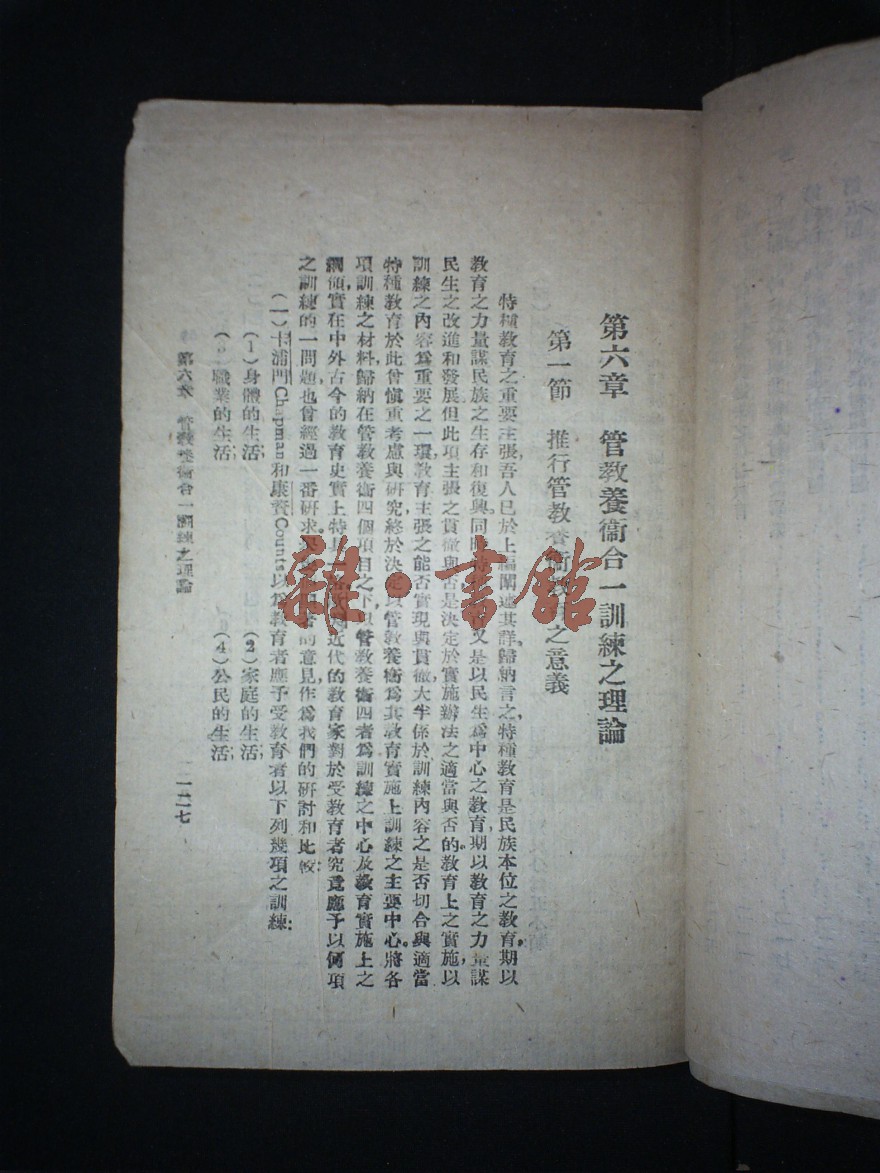 第六章　管教養衞合一訓練之理論
第一節　推行管教養衞教育之意義
特種教育之重要主張吾人已於上編闡述其詳歸納言之，特種教育是民族本位之教育，期以
教育之力量謀民族之生存和復興同時又是以民生爲中心之教育，期以教育之力量謀
民生之改進和發展但此項主張之貫徹與否是決定於實施辦法之適當與否的教育上之實施，以
訓練之內容爲重要之一環，教育主張之能否實現與貫徹大半係於訓練內容之是否切合與適當
特種教育於此曾愼重考慮與研究終於決定以管教養衞爲其教育實施上訓練之主要中心。將各
項訓練之材料歸納在管教養衞四個項目之下以管教養衞四者爲訓練之中心及教育實施上之
綱領，實在中外古今的教育史實上特具近代的教育家對於受教育者究竟應予以何項
之訓練的一問題也曾經過一番研求的意見，作爲我們的研討和比較：
（一）卡浦門Chapman和康資Counts以爲教育者應予受教育者以下列幾項之訓練：
（1）身體的生活；　（2）家庭的生活；
職業的生活；　（4）公民的生活；
第六章　管教養衞合一訓練之理論　一二七
雜·書館